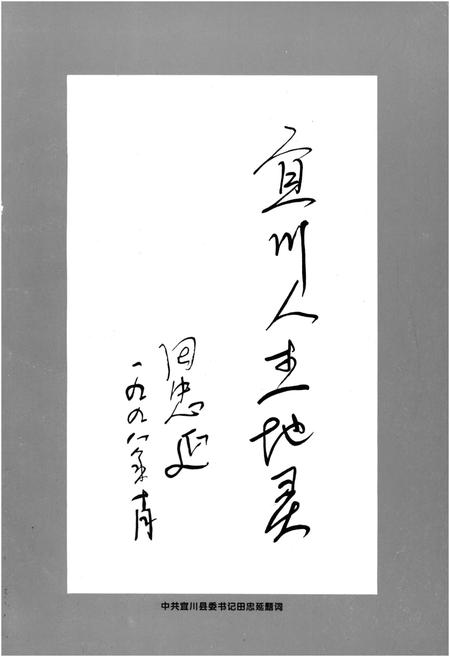 宜川人杰地灵
田忠延
一九九八年十月
中共宜川县委书记田忠延题词